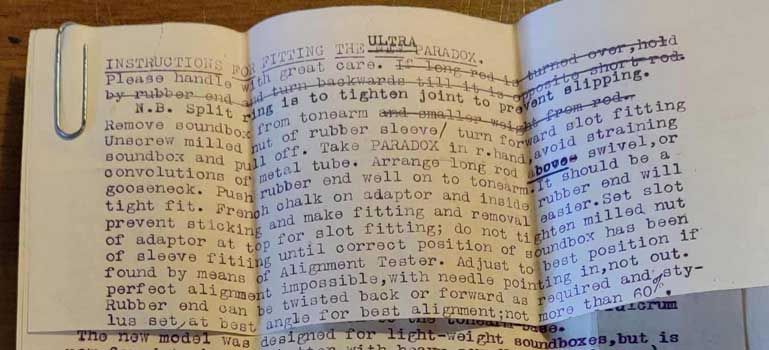 ULTRA
INSTRUCTIONS FOR FITTING THE PARADOX.
Please handle with great care. If long rod is turned over, hold
by rubber end and turn backwards till it is opposite short rod.
N.B. Split ring is to tighten joint to prevent slipping.
Remove soundbox from tonearm and smaller weight from rod.
Unscrew milled nut of rubber sleeve/ turn forward slot fitting
soundbox and pull off. Take PARADOX in r.hand, avoid straining
convolutions of metal tube. Arrange long rod above swivel, or
gooseneck. Push rubber end well on to tonearm. It should be a
tight fit. French chalk on adaptor and inside rubber end will
prevent sticking and make fitting and removal easier. Set slot
of adaptor at top for slot fitting; do not tighten milled nut
of sleeve fitiing until correct position of soundbox has been
found by means of Alignment Tester. Adjust to best position if
perfect alignment impossible, with needle pointing in, not out.
Rubber end can be twisted back or forward as required and sty-
lus set, at best angle for best alignment; not more than 60°.
the tonearm-base. fulcrum
The new model was designed for light-weight soundboxes, but, is